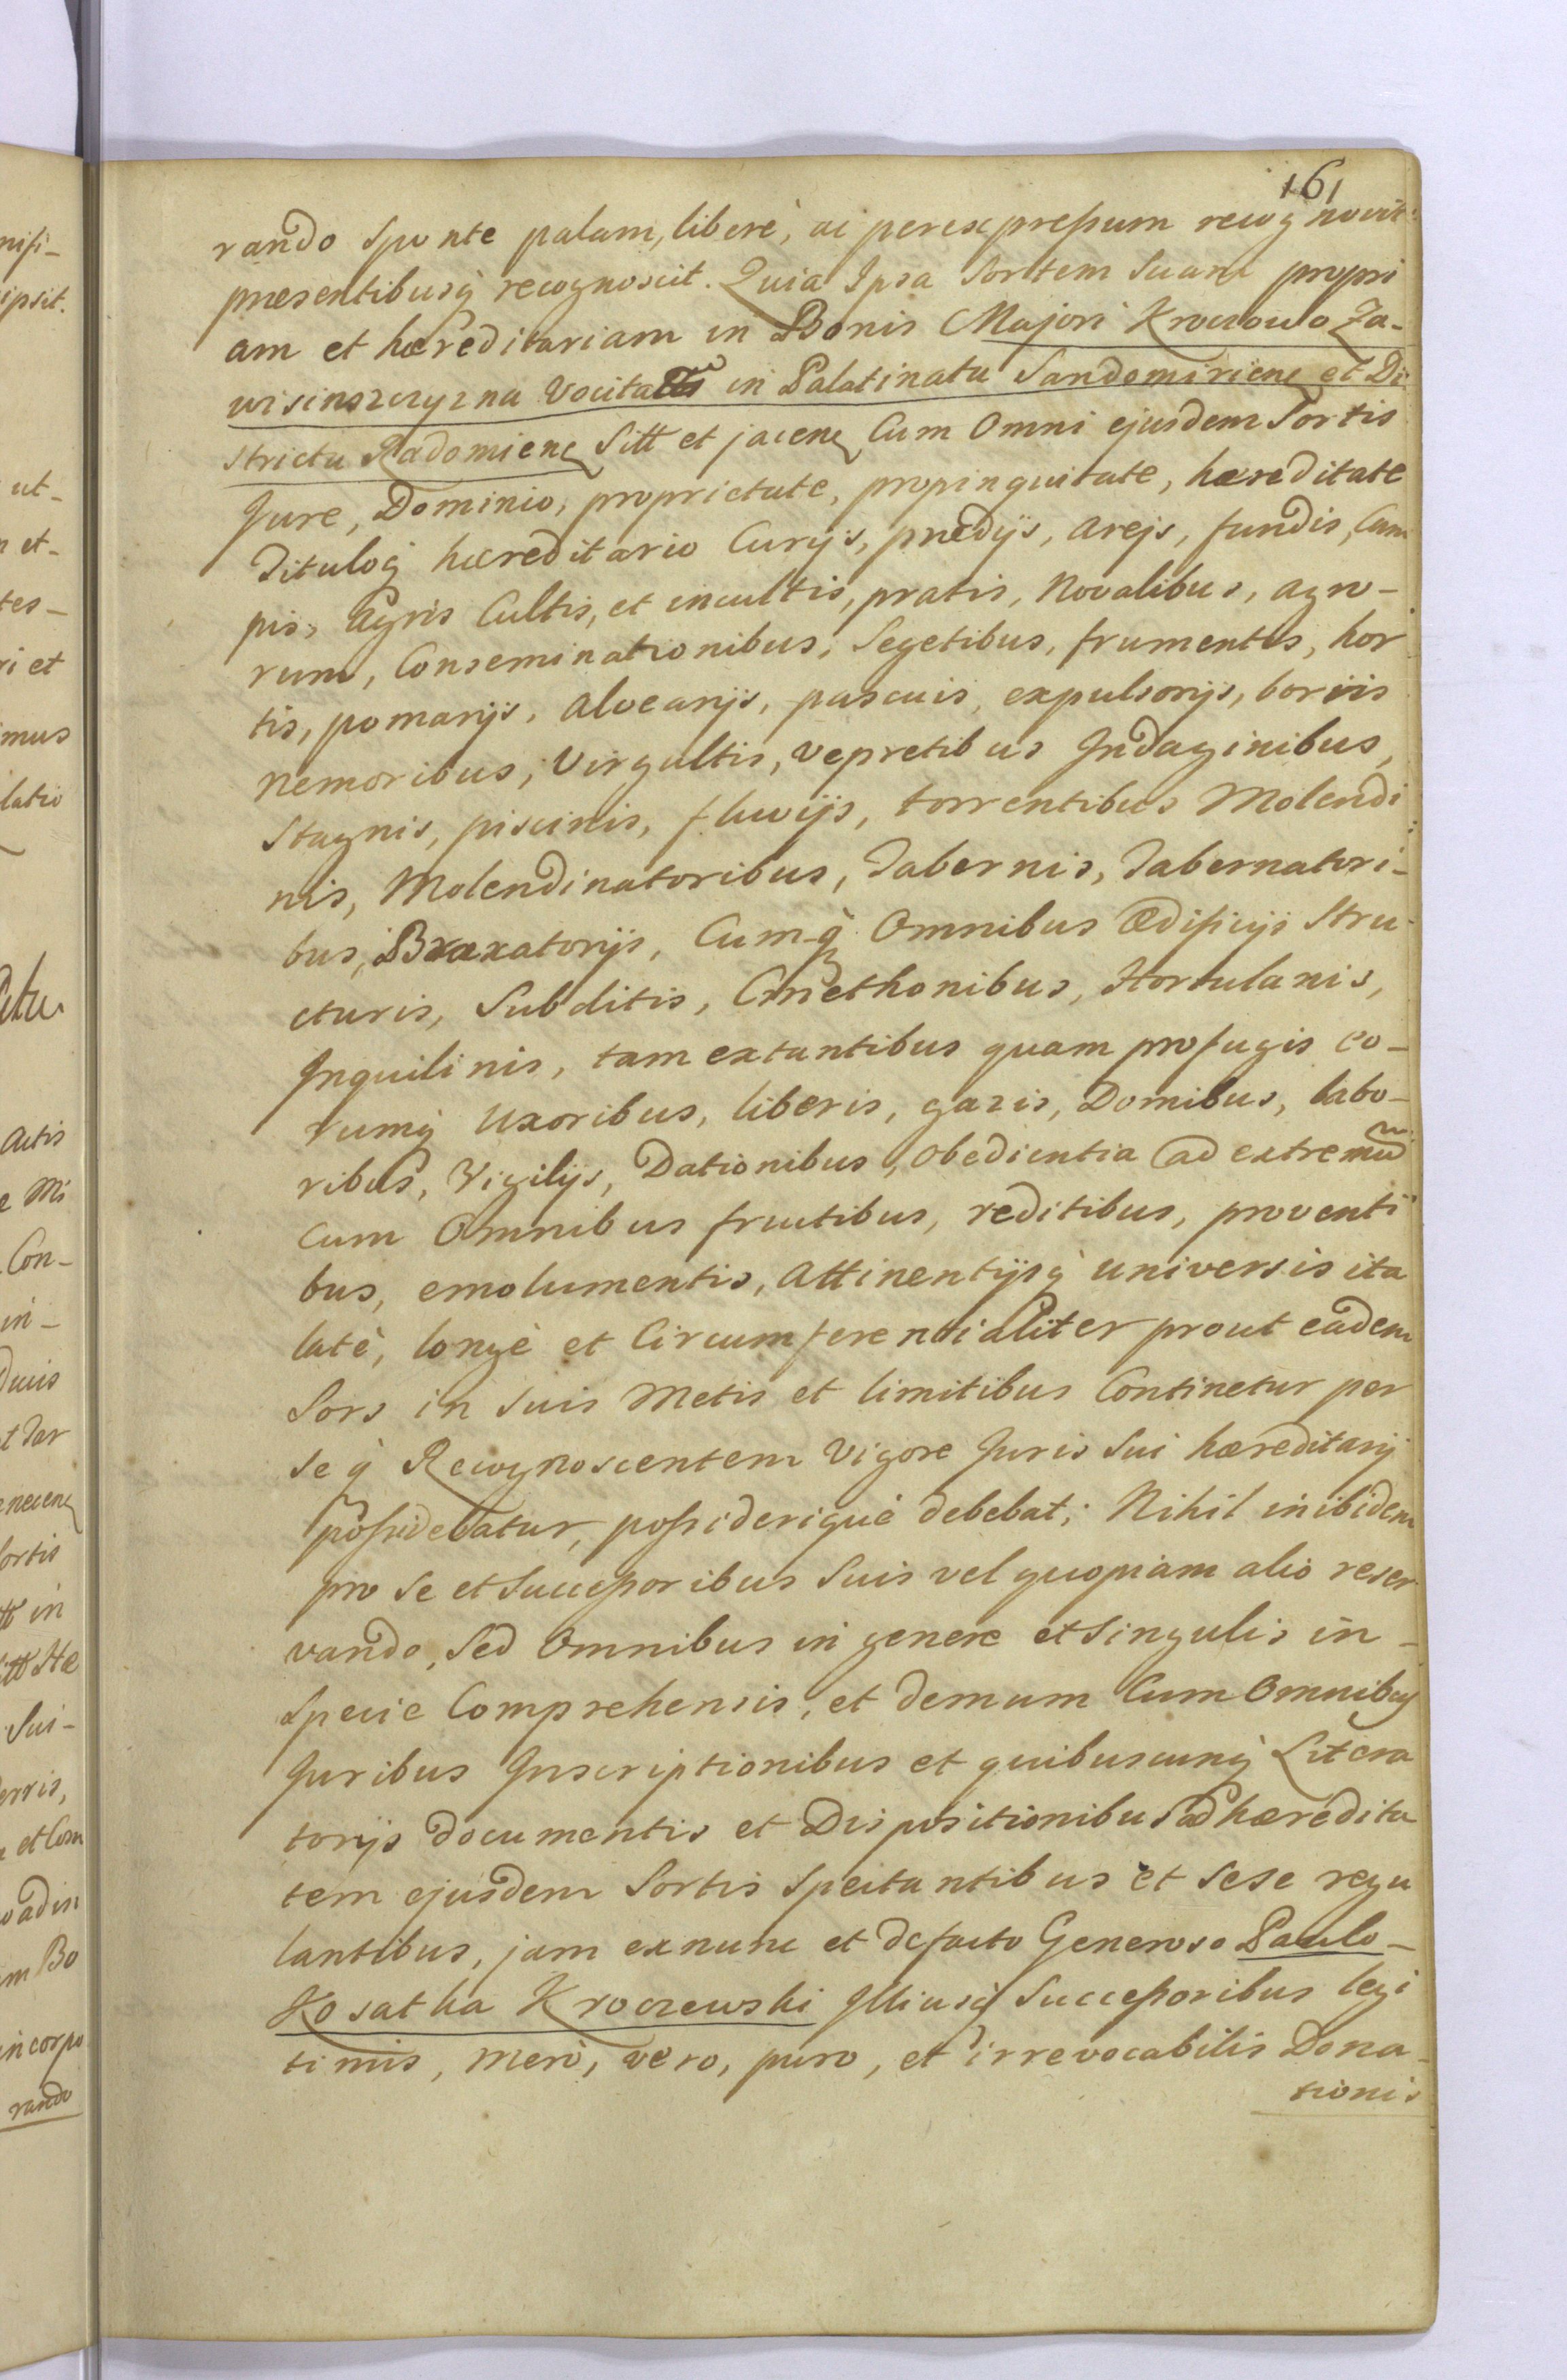 161
rando sponte palam, liberè, ac perexpressum recognovit
præsentibusq recognoscit. Quia Ipsa Sortem Suam propri
am et hæreditariam in Bonis Majori Kroczowo Za-
wisinszczyzna vocitata in Palatinatu Sandomirienę et Di
strictu Radomienę Sitt et jacenę Cum Omni ejusdem Sortis
Jure, Dominio, proprietate, propinquitate, hæreditate
Tituloq hæreditario Curijs, prædijs, arejs, fundis, Cam
pis, agris Cultis, et incultis, pratis, Novalibus, agro-
rum, Conseminationibus, Segetibus, frumentis, hor
tis, pomarijs, alvearijs, pascuis, expulsorijs, borris
Nemoribus, Virgultis, vepretibus Indaginibus,
Stagnis, piscinis, fluvijs, torrentibus Molendi
nis, Molendinatoribus, Tabernis, Tabernatori-
bus, Braxatorijs, Cum-q Omnibus Ædificijs Stru-
cturis, Subditis, Cmethonibus, Hortulanis,
Inquilinis, tam extantibus quam profugis eo-
rumq Uxoribus, liberis, gazis, Domibus, labo-
ribus, Vigilijs, Dationibus, obedientia ad extremũ
cum Omnibus fructibus, reditibus, proventi
bus, emolumentis, Attinentijsq universis ita
latè, longè et Circumferentialiter prout eadem
Sors in suis Metis et limitibus Continetur per
seq Recognoscentem Vigore Juris Sui hæreditarij
possidebatur, possideriquè debebat; Nihil inibidem
pro se et Successoribus Suis vel quopiam alio reser
vando, Sed Omnibus in genere et Singulis in-
Specie Comprehensis, et demum Cum Omnibus
Juribus Inscriptionibus et quibuscunq Litera
torijs documentis et Dispositionibus ad hæredita
tem ejusdem Sortis Spectantibus et Sese regu
lantibus, jam exnunc et defacto Generoso Paulo-
Kosatka Kroczewski Illiusq Successoribus legi
timis, mero, vero, puro, et irrevocabilis Dona-
tionis